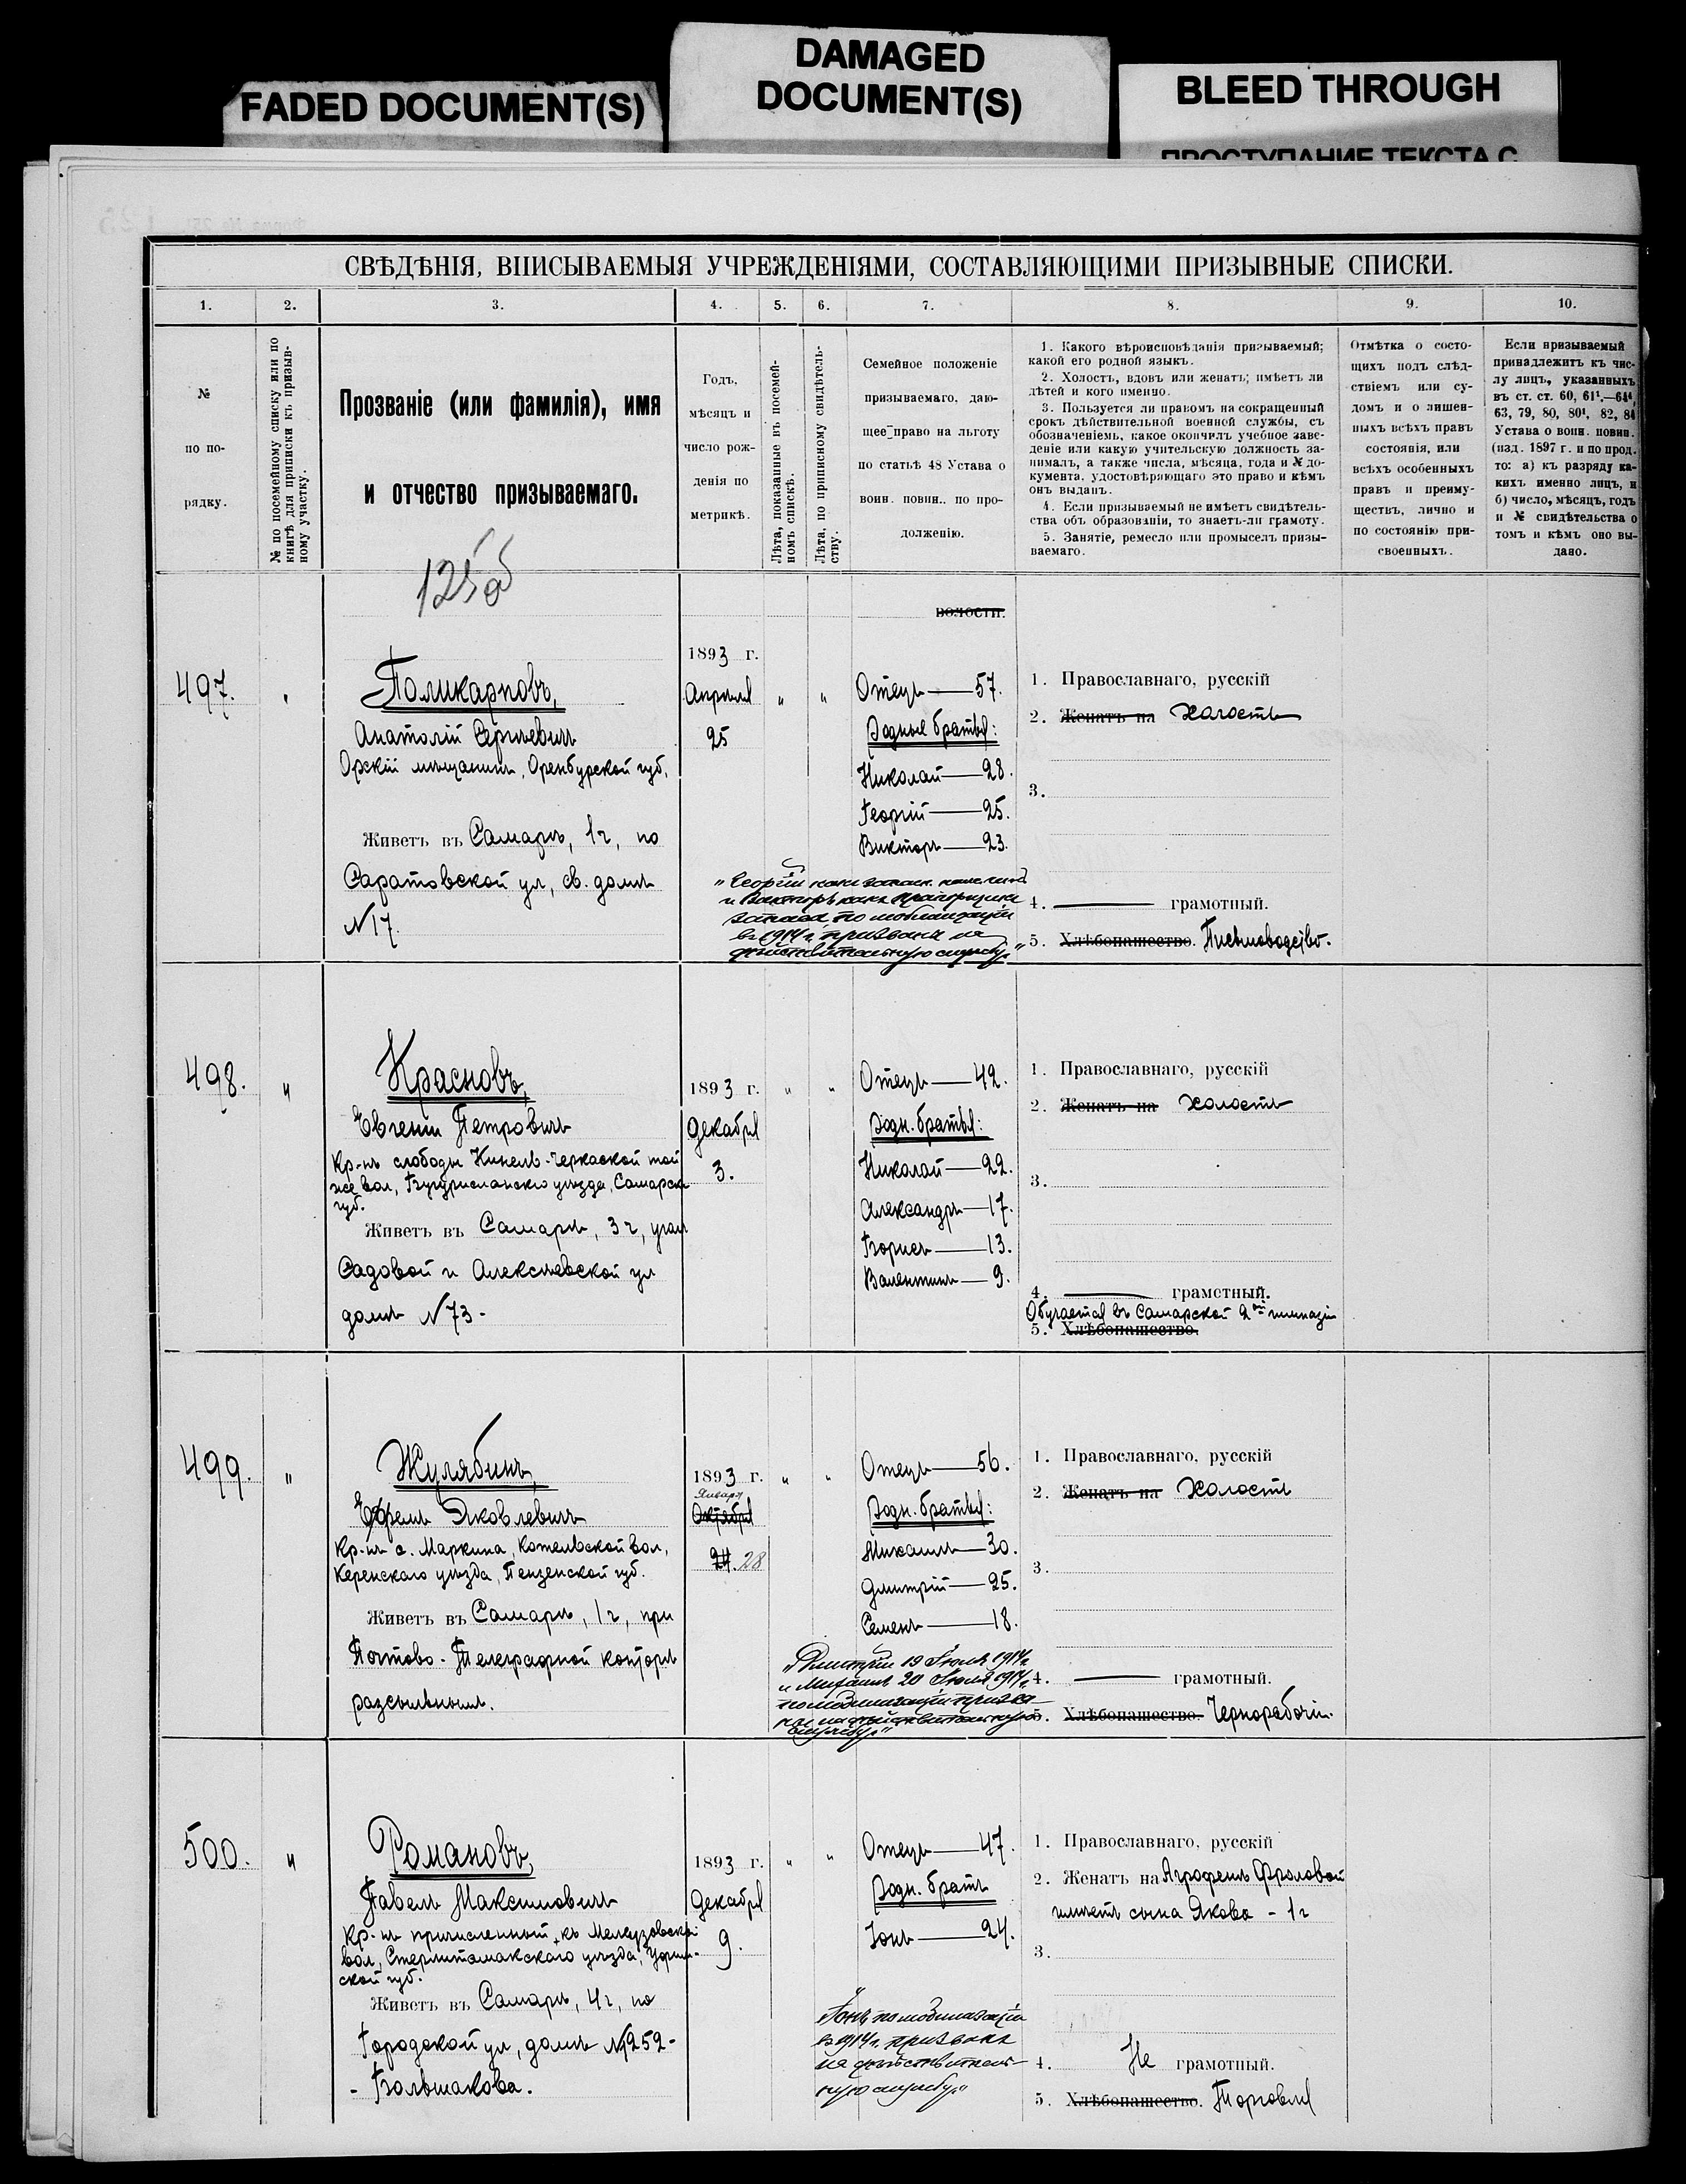 FADED DOCUMENT(S)
DAMAGED
DOCUMENT(S)
BLEED THROUGH
ПРОСТУПАНИЕ ТЕКСТА С
СВѢДѢНІЯ, ВПИСЫВАЕМЫЯ УЧРЕЖДЕНІЯМИ, СОСТАВЛЯЮЩИМИ ПРИЗЫВНЫЕ СПИСКИ.
1. 2. 3. 4. 5. 6. 7. 8. 9. 10.
№
по по-
рядку.
№ по посемейному списку или по
книгѣ для приписки къ призыв-
ному участку.
Прозваніе (или фамилія), имя
и отчество призываемаго.
Годъ,
мѣсяцъ и
число рож-
денія по
метрикѣ.
Лѣта, показанные въ посемей-
номъ спискѣ.
Лѣта, по приписному свидѣтель-
ству.
Семейное положеніе
призываемаго, даю-
щее право на льготу
по статьѣ 48 Устава о
воин. повин., по про-
долженію.
1. Какого вѣроисповѣданія призываемый;
какой его родной языкъ.
2. Холостъ, вдовъ или женатъ; имѣетъ ли
дѣтей и кого именно.
3. Пользуется ли правомъ на сокращенный
срокъ дѣйствительной военной службы, съ
обозначеніемъ, какое окончилъ учебное заве-
деніе или какую учительскую должность за-
нималъ, а также числа, мѣсяца, года и № до-
кумента, удостовѣряющаго это право и кѣмъ
онъ выданъ.
4. Если призываемый не имѣетъ свидѣтель-
ства объ образованіи, то знаетъ-ли грамоту.
5. Занятіе, ремесло или промыселъ призы-
ваемаго.
Отмѣтка о состо-
щихъ подъ слѣд-
ствіемъ или су-
домъ и о лишен-
ныхъ всѣхъ правъ
состоянія, или
всѣхъ особенныхъ
правъ и преиму-
ществъ, лично и
по состоянію при-
своенныхъ.
Если призываемый
принадлежитъ къ чис-
лу лицъ, указанныхъ
въ ст. ст. 60, 61¹.—64⁴,
63, 79, 80, 80¹, 82, 84
Устава о воин. повин.
(изд. 1897 г. и по прод.
то: а) къ разряду ка-
кихъ именно лицъ, и
б) число, мѣсяцъ, годъ
и № свидѣтельства о
томъ и кѣмъ оно вы-
дано.
125об
волости.
497. "
Поликарповъ,
Анатолій Сергѣевичъ
Орскій мѣщанинъ, Оренбурской губ,
Живетъ въ Самарѣ, 1ч, по
Саратовской ул, св. домъ
№17.
1893 г.
Апрѣля
25
" "
Отецъ—57.
Родные братья:
Николай—28.
Георгій—25.
Викторъ—23.
"Георгій
и Викторъ какъ прапорщики
запаса, по мобилизаціи
въ 1914 г. призваны на
дѣйствительную службу."
1. Православнаго, русскій
2. Женатъ на Холостъ
3.
4. — грамотный.
5. Хлѣбопашество. Письмоводство.
498. "
Красновъ,
Евгеній Петровичъ
Кр-нъ слободы Кинель-Черкаской той
же вол, Бугурусланскаго уѣзда, Самарск
губ.
Живетъ въ Самарѣ, 3ч, уголъ
Садовой и Алексѣевской ул
домъ №73-
1893 г.
Декабря
3.
" "
Отецъ—42.
Родн. братья:
Николай—22.
Александръ—17.
Борисъ—13.
Валентинъ—9.
1. Православнаго, русскій
2. Женатъ на холостъ
3.
4. — грамотный.
Обучается въ Самарской 2ой гимназіи
5. Хлѣбопашество.
499. "
Жулябинъ,
Ефремъ Яковлевичъ
Кр-нъ с. Маркина, Котельской вол,
Керенскаго уѣзда, Пензенской губ.
Живетъ въ Самарѣ, 1ч, при
Почтово-Телеграфной конторѣ
разсыльнымъ.
1893 г.
Января
Октября
24. 28
" "
Отецъ—56.
Родн. братья:
Михаилъ—30.
Дмитрій—25.
Семенъ—18.
"Дмитрій 19 Іюля 1914г.
и Михаилъ 20 Іюля 1914г.
по мобилизаціи призва-
ны на дѣйствительную
службу."
1. Православнаго, русскій
2. Женатъ на Холостъ
3.
4. — грамотный.
5. Хлѣбопашество. Чернорабочій.
500. "
Романовъ,
Павелъ Максимовичъ
Кр-нъ причисленный къ Мелеузовской
вол, Стерлитамакскаго уѣзда, Уфим-
ской губ.
Живетъ въ Самарѣ, 4ч, по
Городской ул, домъ №252-
- Большакова.
1893 г.
Декабря
9.
" "
Отецъ—47.
Родн. братъ
Іонъ—24.
"Іонъ по мобилизаціи
въ 1914г. призванъ
на дѣйствитель-
ную службу."
1. Православнаго, русскій
2. Женатъ на Агрофенѣ Фроловой
имѣетъ сына Якова - 1г
3.
4. Не грамотный.
5. Хлѣбопашество. Торговля